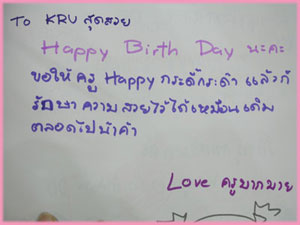 To KRU สุดสวย
Happy Birth Day นะคะ
ขอให้ ครู Happy กระดี้กระด้า แล้วก็
รักษา ความสวยไว้ได้เหมือนเดิม
ตลอดไปน้าค้า
Love ครูมากมาย